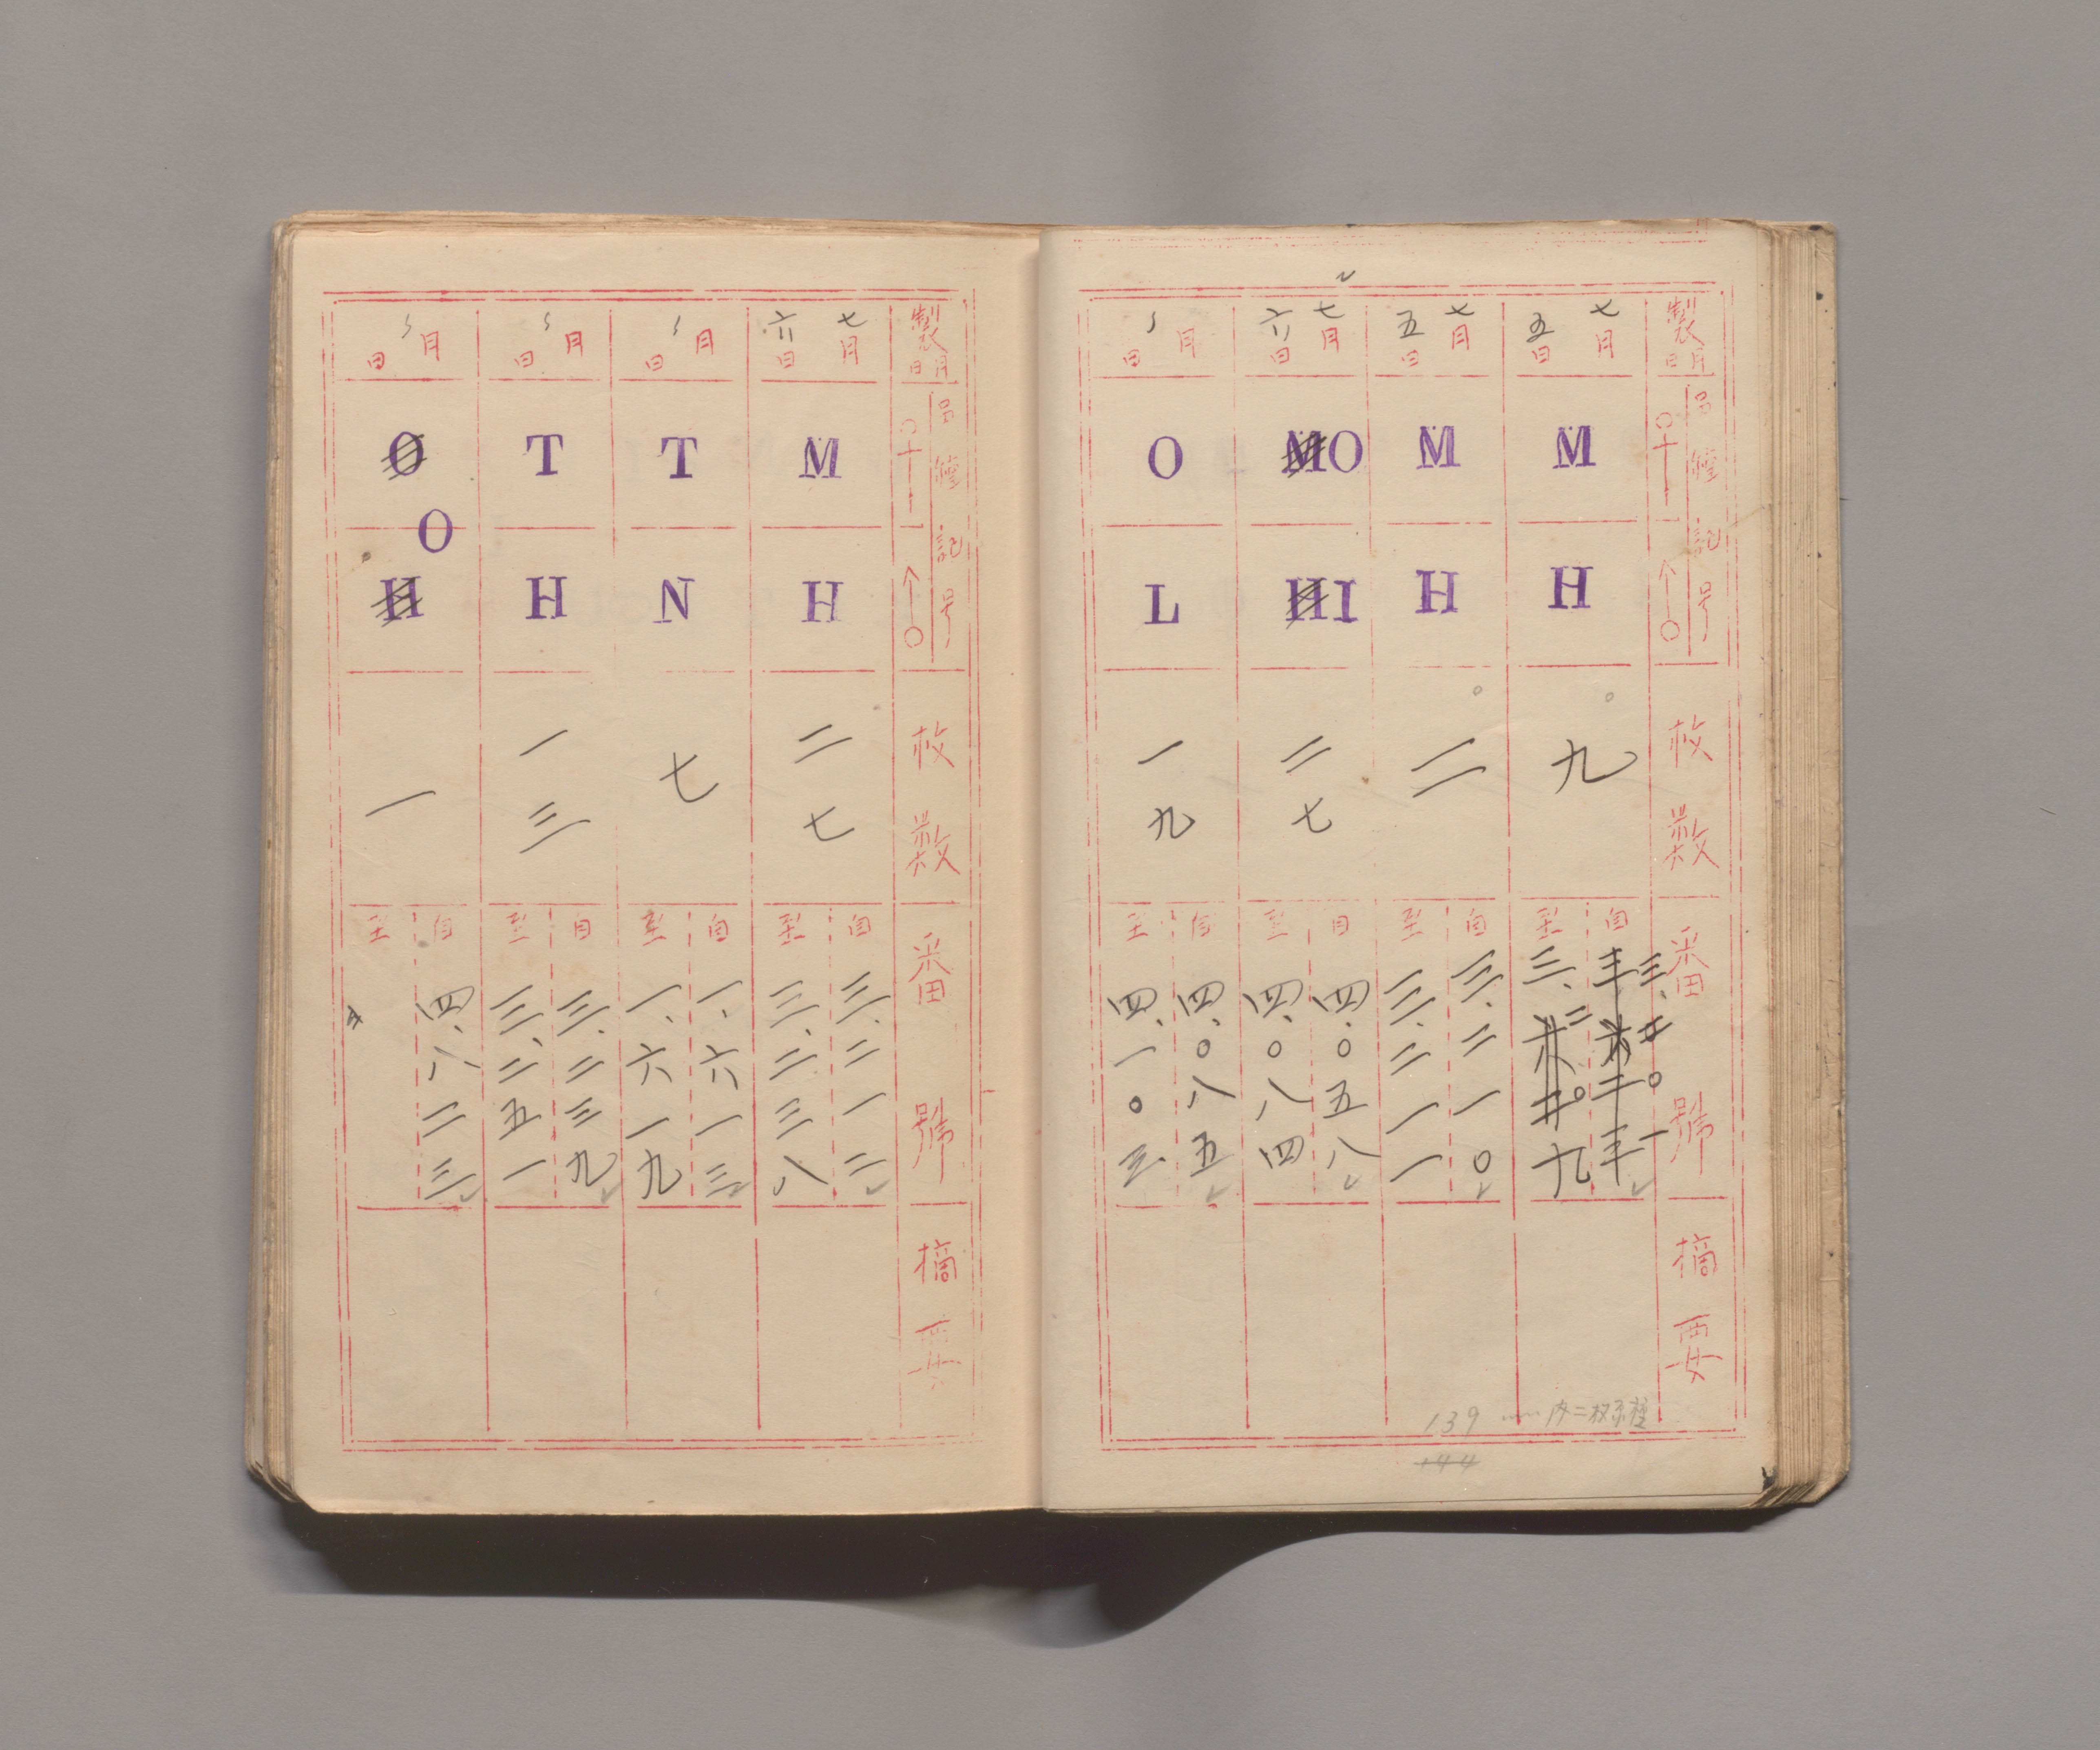 製月日
品種記号
枚数
番號
摘要
七月五日
M
H
九
自 三、二〇一
至 三、二〇九
七月五日
M
H
二
自 三、二一〇
至 三、二一一
七月六日
M O
H I
二七
自 四、〇五八
至 四、〇八四
月 日
O
L
一九
自 四、〇八五
至 四、一〇三
139
144
製月日
品種記号
枚数
番號
摘要
七月六日
M
H
二七
自 三、二一二
至 三、二三八
月 日
T
N
七
自 一、六一三
至 一、六一九
月 日
T
H
一三
自 三、二三九
至 三、二五一
月 日
O
O
H
一
自 四、八二三
至